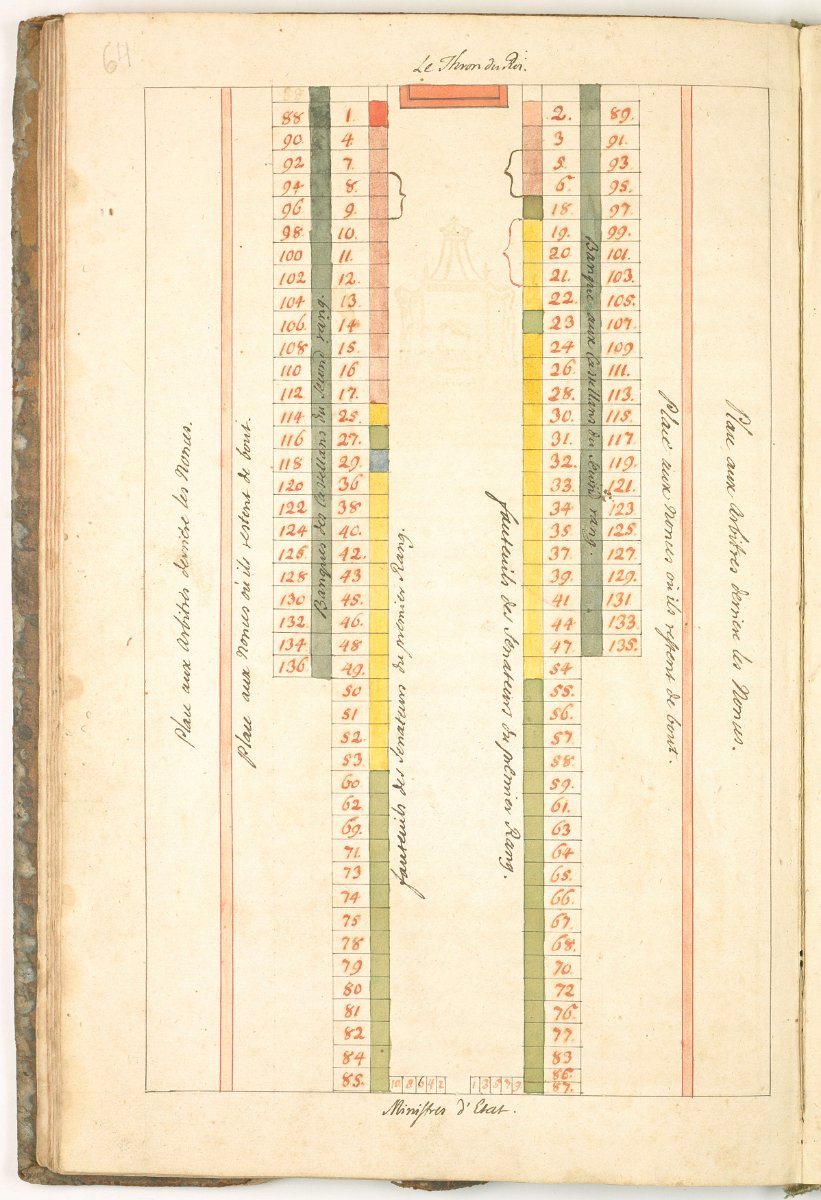 64
Le Thron du Roi.
88 1. 2. 89.
90 4 3 91.
92 7. 5. 93
94 8. 6. 95.
96 9. 18. 97.
98 10. 19. 99.
100 11. 20. 101.
102 12. 21. 103.
104 13. 22. 105.
106. 14 23 107.
108 15. 24 109
110 16 26. 111.
112 17. 28. 113.
114 25. 30. 115.
116 27. 31. 117.
118 29. 32. 119.
120 36 33. 121.
122 38 34 123
124 40. 35. 125.
126 42. 37. 127.
128 43 39. 129.
130 45. 41 131
132 46. 44 133.
134 48 47 135.
136 49. 54
50 55.
51 56.
52. 57
53. 58.
60 59.
62 61.
69. 63
71. 64
73 65.
74 66.
75 67.
78 68.
79 70.
80 72
81 76.
82 77.
84 83
85. 86.
87.
Place aux Arbitres derriere les Nonces.
Place aux Nonces où ils restent de bout.
Banques des Castellans du second rang.
fauteuils des Senateurs du premier Rang.
fauteuils des Senateurs du premier Rang.
Banque aux Castellans du second rang.
Place aux Nonces où ils restent de bout.
Place aux Arbitres derriere les Nonces.
10 8 6 4 2 1 3 5 7 9
Ministres d'Etat.